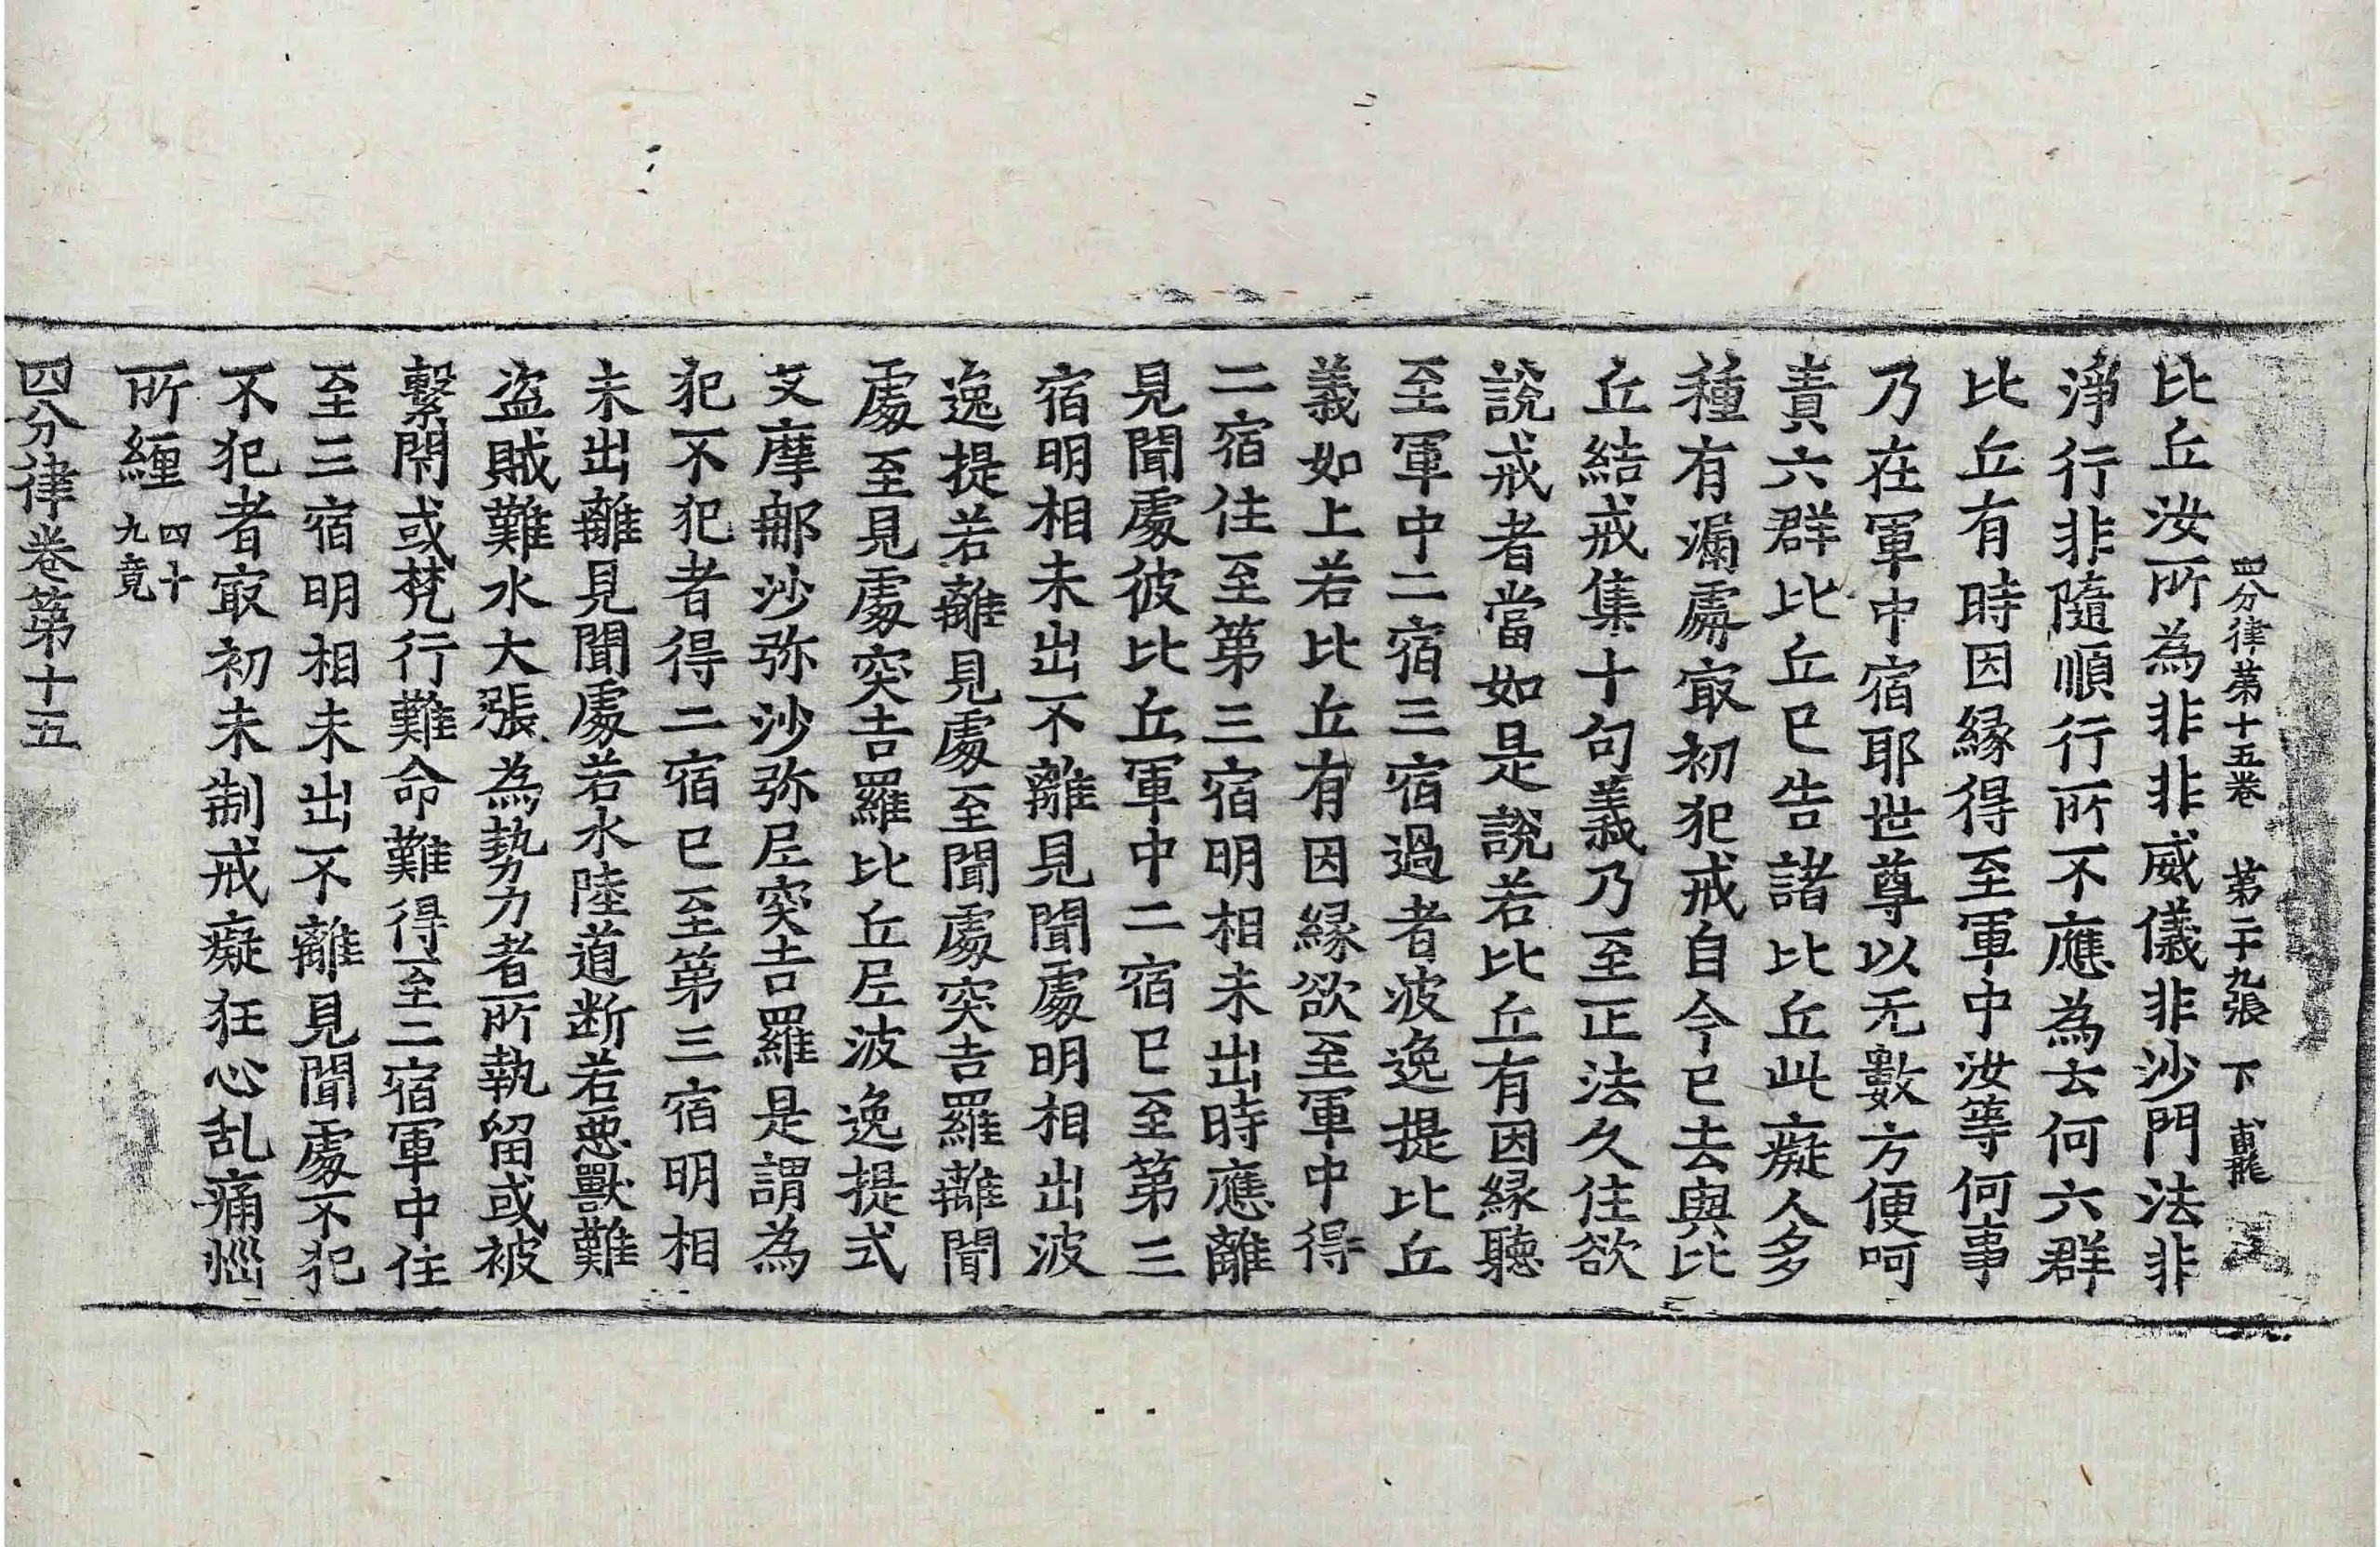 四分律第十五卷 第二十九張 下
比丘汝所為非非威儀非沙門法非
淨行非隨順行所不應為云何六群
比丘有時因緣得至軍中汝等何事
乃在軍中宿耶世尊以无數方便呵
責六群比丘已告諸比丘此癡人多
種有漏處㝡初犯戒自今已去與比
丘結戒集十句義乃至正法久住欲
說戒者當如是說若比丘有因緣聽
至軍中二宿三宿過者波逸提比丘
義如上若比丘有因緣欲至軍中得
二宿住至第三宿明相未出時應離
見聞處彼比丘軍中二宿已至第三
宿明相未出不離見聞處明相出波
逸提若離見處至聞處突吉羅離聞
處至見處突吉羅比丘尼波逸提式
叉摩那沙弥沙弥尼突吉羅是謂為
犯不犯者得二宿已至第三宿明相
未出離見聞處若水陸道断若惡獸難
盜賊難水大張為勢力者所執留或被
繫閇或梵行難命難得至二宿軍中住
至三宿明相未出不離見聞處不犯
不犯者㝡初未制戒癡狂心乱痛惱
所纏 四十
九竟
四分律卷第十五